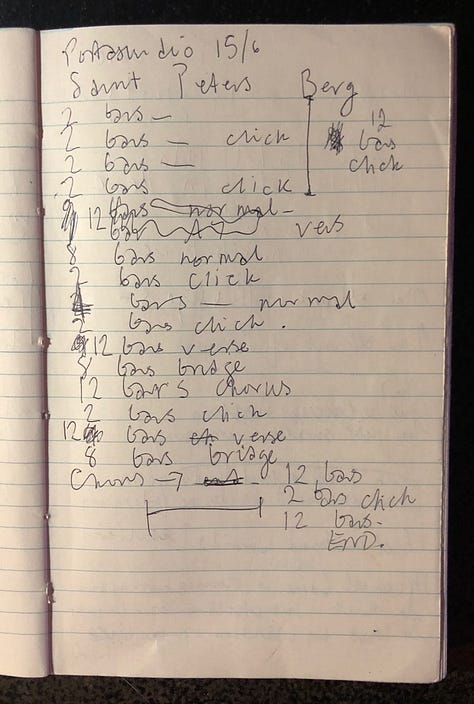 Portasuudio 15/6
Saint Peters Berg
2 bars —
2 bars — click
2 bars —
2 bars click
12 bars click
12 bars normal —
vers
8 bars normal
2 bars click
bars — normal
2 bars click.
12 bars verse
8 bars bridge
12 bars chorus
2 bars click
12 bars verse
8 bars bridge
Chorus → 12 bars
2 bars click
12 bars.
END.